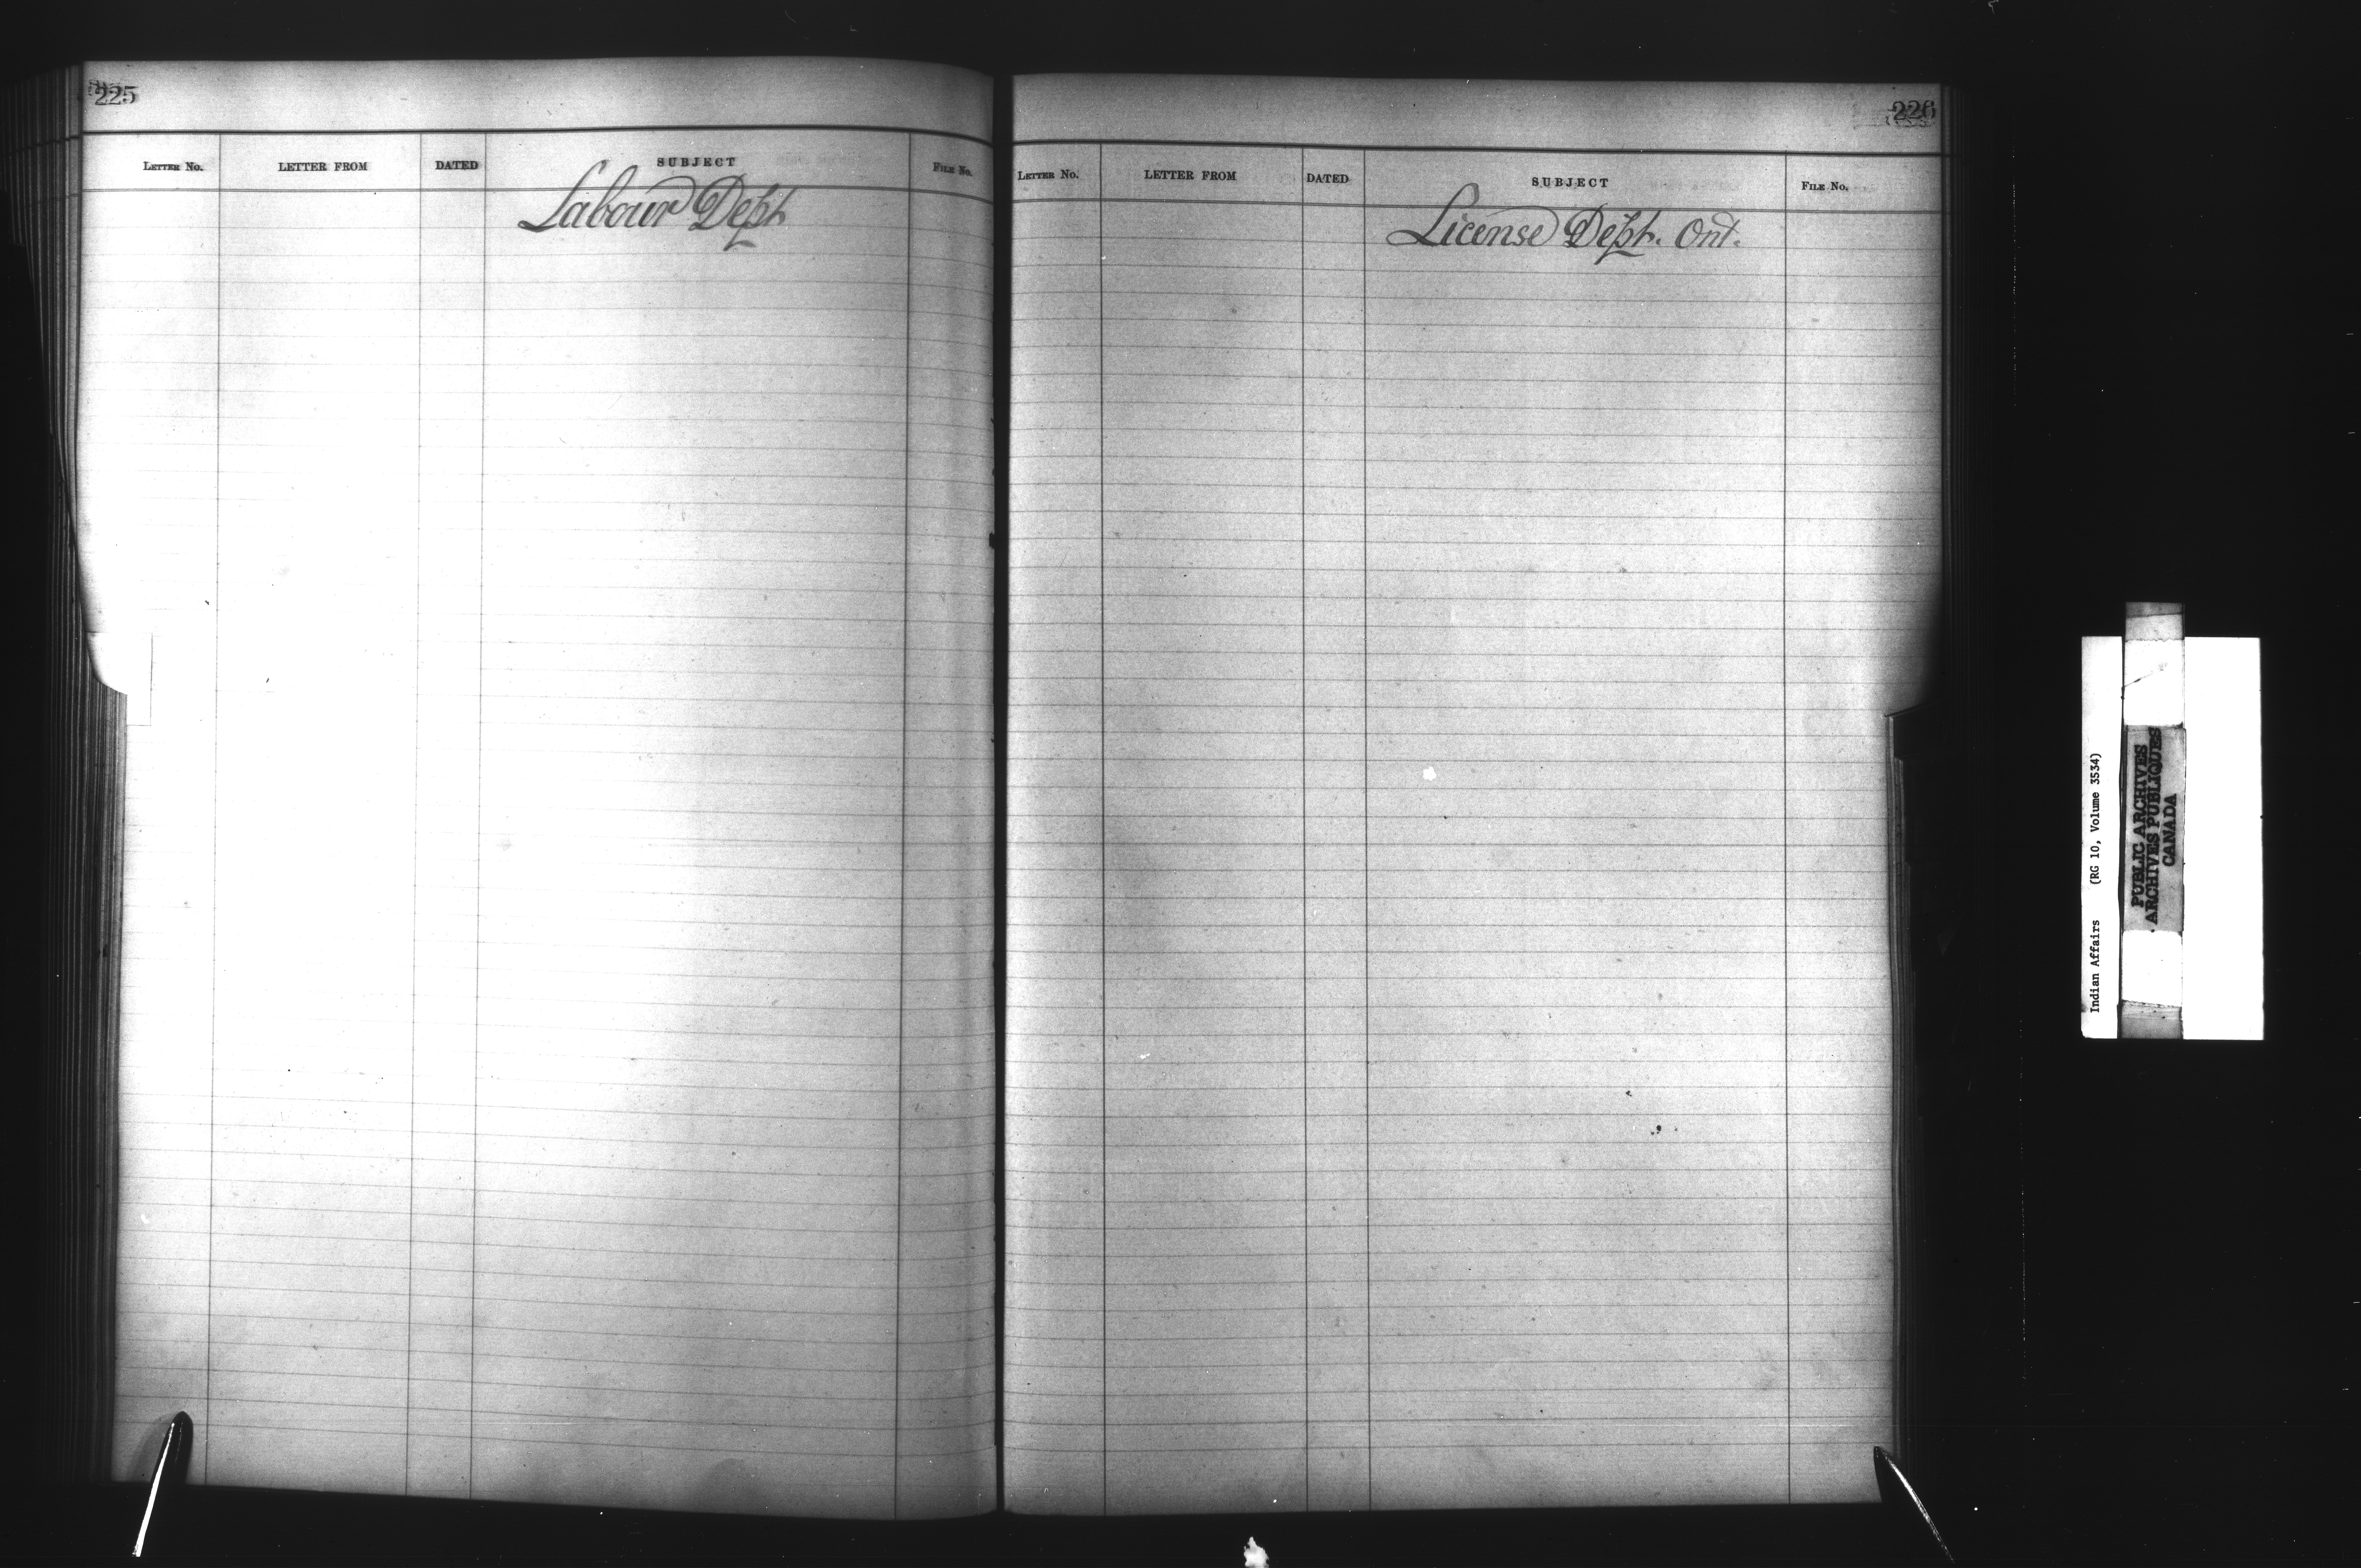 225
LETTER No. LETTER FROM DATED SUBJECT FILE No.
Labour Dept
226
LETTER No. LETTER FROM DATED SUBJECT FILE No.
License Dept. Ont.
Indian Affairs (RG 10, Volume 3534)
PUBLIC ARCHIVES
ARCHIVES PUBLIQUES
CANADA